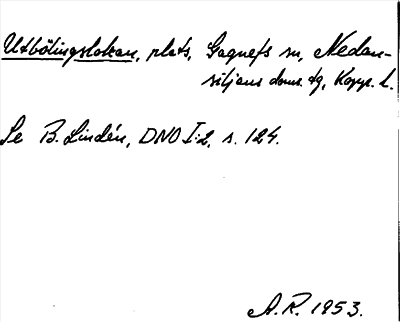 Utbölingslokan, plats, Gagnefs sn, Nedan-
siljans doms. tg, Kopp. l.
Se B. Lindén, DNO I:2, s. 124.
A.R. 1953.